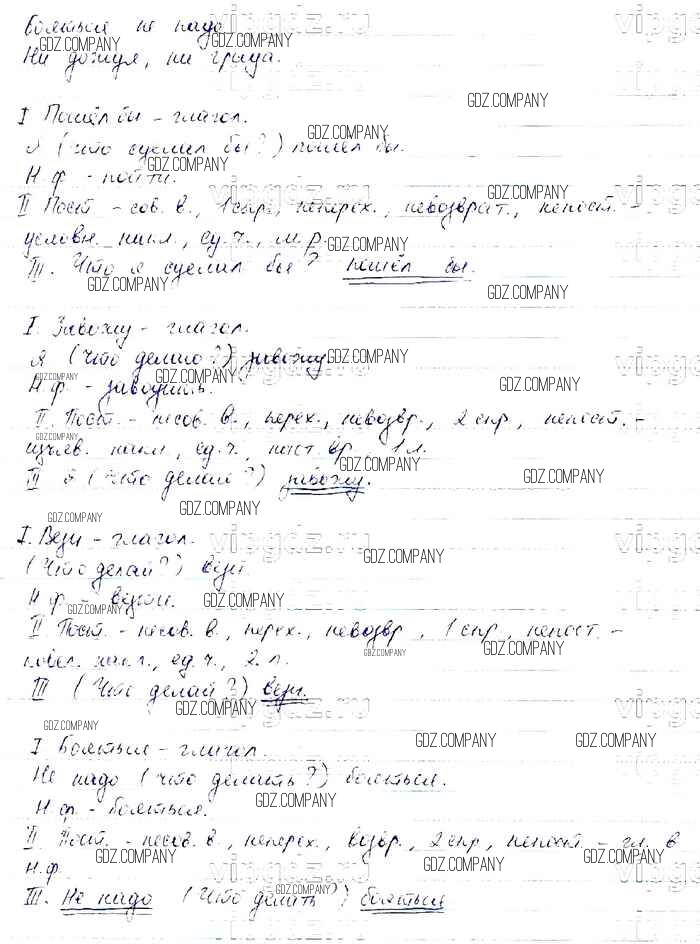 Бояться не надо
Ни дождя, ни града.
I Пошёл бы – глагол.
Я (что сделал бы?) пошёл бы.
Н.ф. – пойти.
II Пост – сов. в., 1 спр, неперех., невозврат., непост. –
условн. накл., ед. ч., м. р.
III. Что я сделал бы? пошёл бы.
I. Завожу – глагол.
Я (Что делаю?) завожу
Н.ф. – заводить.
II. Пост. – несов. в., перех., невозвр., 2 спр, непост. –
изъяв. накл, ед. ч., наст. вр., 1 л.
III я (Что делаю?) завожу.
I. Вези – глагол.
(Что делай?) вези
Н.ф – везти.
II. Пост. – несов. в., перех., невозвр, 1 спр, непост. –
повел. накл., ед. ч., 2 л.
III (Что делай?) вези.
I Бояться – глагол.
Не надо (что делать?) бояться.
Н.ф. – бояться.
II Пост. – несов. в., неперех., возвр., 2 спр, непост – гл. в
н.ф.
III. Не надо (Что делать?) бояться
GDZ.COMPANY
vipgdz.ru